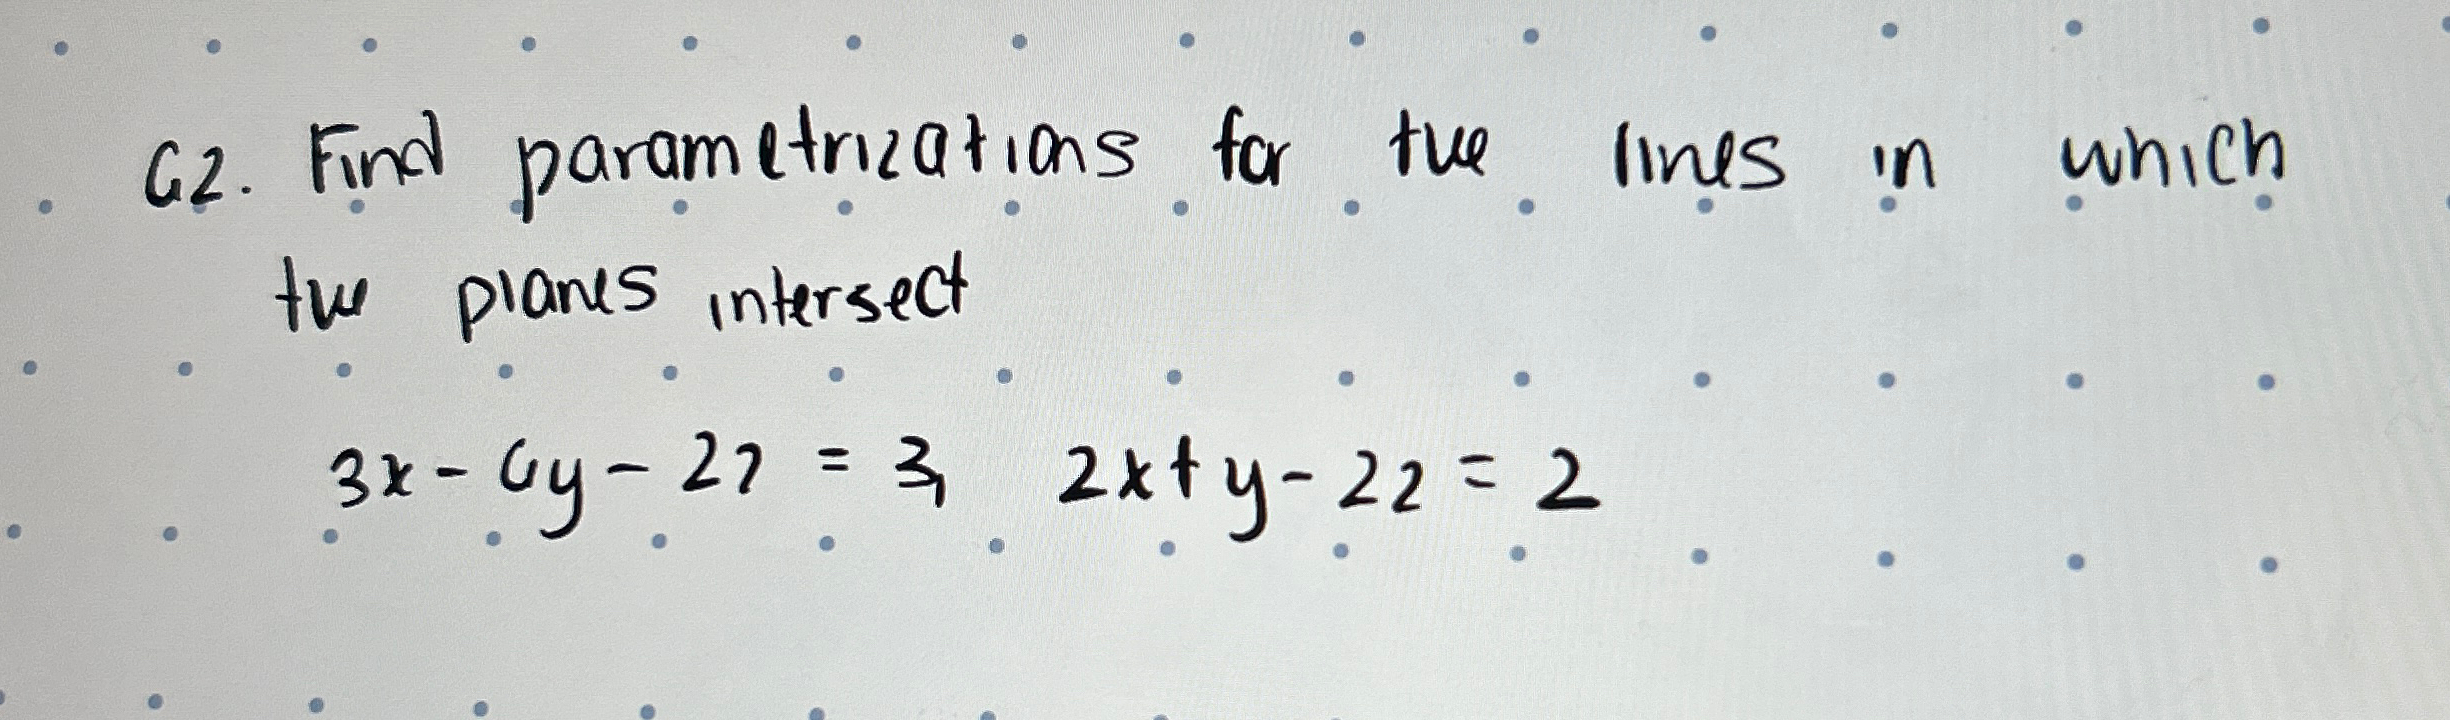 62. Find parametrizations for the lines in which
the planes intersect
3x - 6y - 2z = 3, 2x + y - 2z = 2